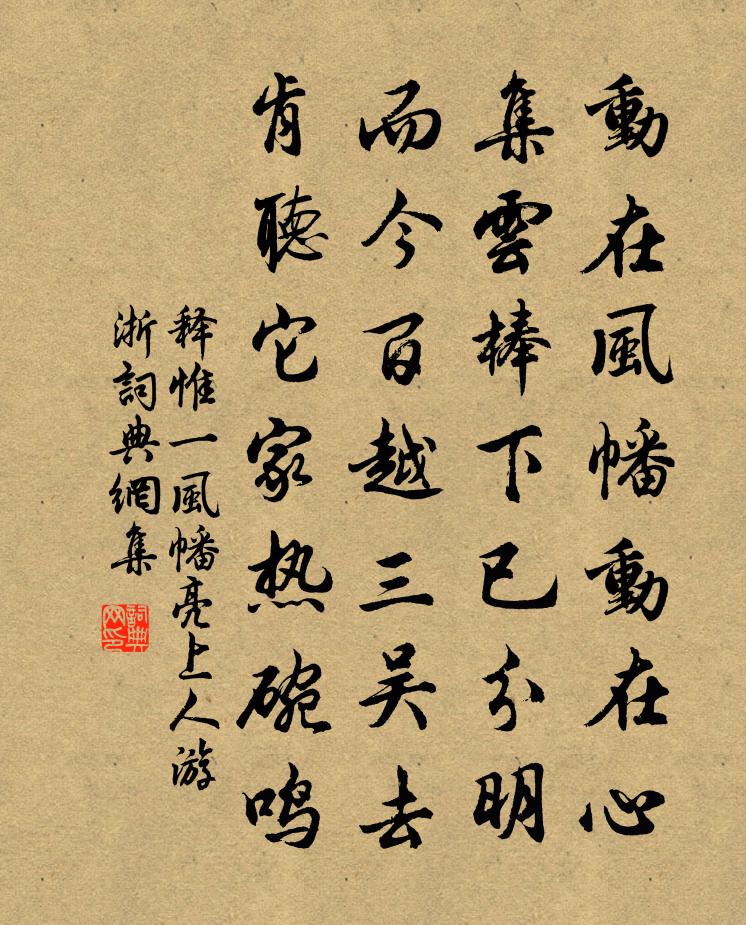 動在風幡動在心
集雲棒下已分明
而今百越三吴去
肯聽它家热碗鸣
释惟一風幡亮上人游
浙詞典網集
詞典网印